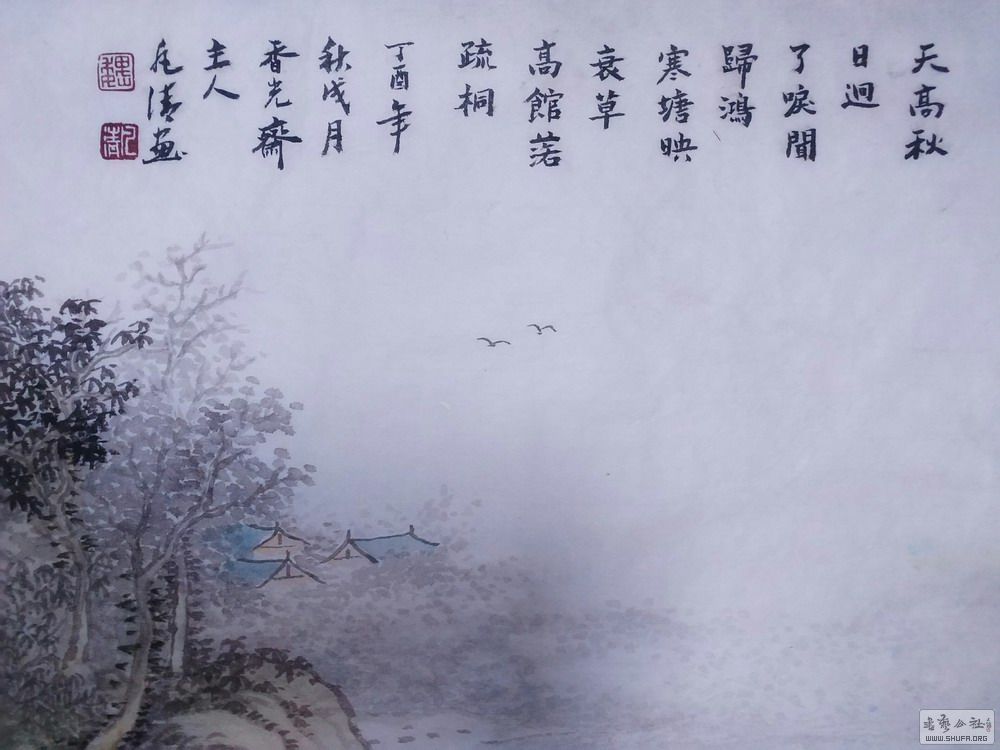 天高秋
日迥
了唳聞
歸鴻
寒塘映
衰草
高館落
疏桐
丁酉年
秋戌月
香光齋
主人
清画
魏
书艺公社
WWW.SHUFA.ORG